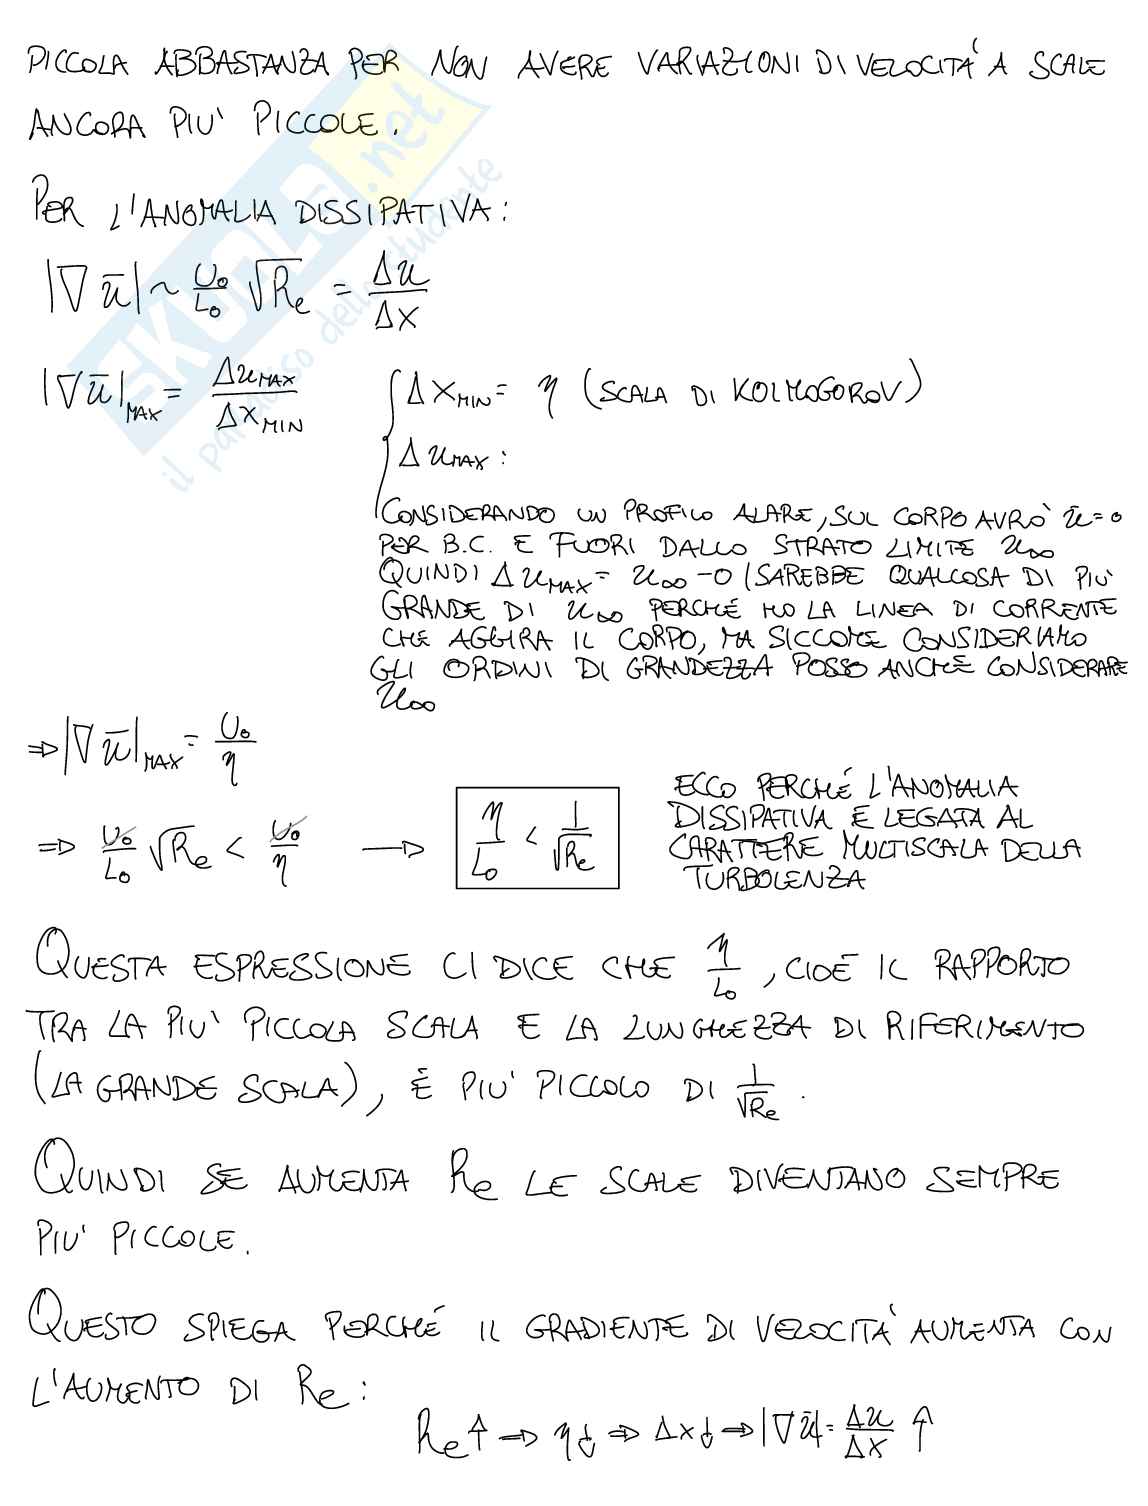 PICCOLA ABBASTANZA PER NON AVERE VARIAZIONI DI VELOCITA' A SCALE
ANCORA PIU' PICCOLE.
PER L'ANOMALIA DISSIPATIVA:
|∇ū| ~ U₀/L₀ √Re = Δu/Δx
|∇ū|MAX = ΔuMAX/ΔxMIN
{ΔxMIN = η (SCALA DI KOLMOGOROV)
ΔuMAX:
CONSIDERANDO UN PROFILO ALARE, SUL CORPO AVRÒ ū=0
PER B.C. E FUORI DALLO STRATO LIMITE u∞
QUINDI ΔuMAX = u∞ -0 (SAREBBE QUALCOSA DI PIÙ
GRANDE DI u∞ PERCHÉ HO LA LINEA DI CORRENTE
CHE AGGIRA IL CORPO, MA SICCOME CONSIDERIAMO
GLI ORDINI DI GRANDEZZA POSSO ANCHE CONSIDERARE
u∞
⇒ |∇ū|MAX = U₀/η
⇒ U₀/L₀ √Re < U₀/η → η/L₀ < 1/√Re
ECCO PERCHÉ L'ANOMALIA
DISSIPATIVA È LEGATA AL
CARATTERE MULTISCALA DELLA
TURBOLENZA
QUESTA ESPRESSIONE CI DICE CHE η/L₀, CIOÈ IL RAPPORTO
TRA LA PIU' PICCOLA SCALA E LA LUNGHEZZA DI RIFERIMENTO
(LA GRANDE SCALA), È PIU' PICCOLO DI 1/√Re.
QUINDI SE AUMENTA Re LE SCALE DIVENTANO SEMPRE
PIU' PICCOLE.
QUESTO SPIEGA PERCHÉ IL GRADIENTE DI VELOCITA' AUMENTA CON
L'AUMENTO DI Re:
Re↑ ⇒ η↓ ⇒ Δx↓ ⇒ |∇ū| = Δu/Δx ↑
SKUOLA.net
il paradiso dello studente